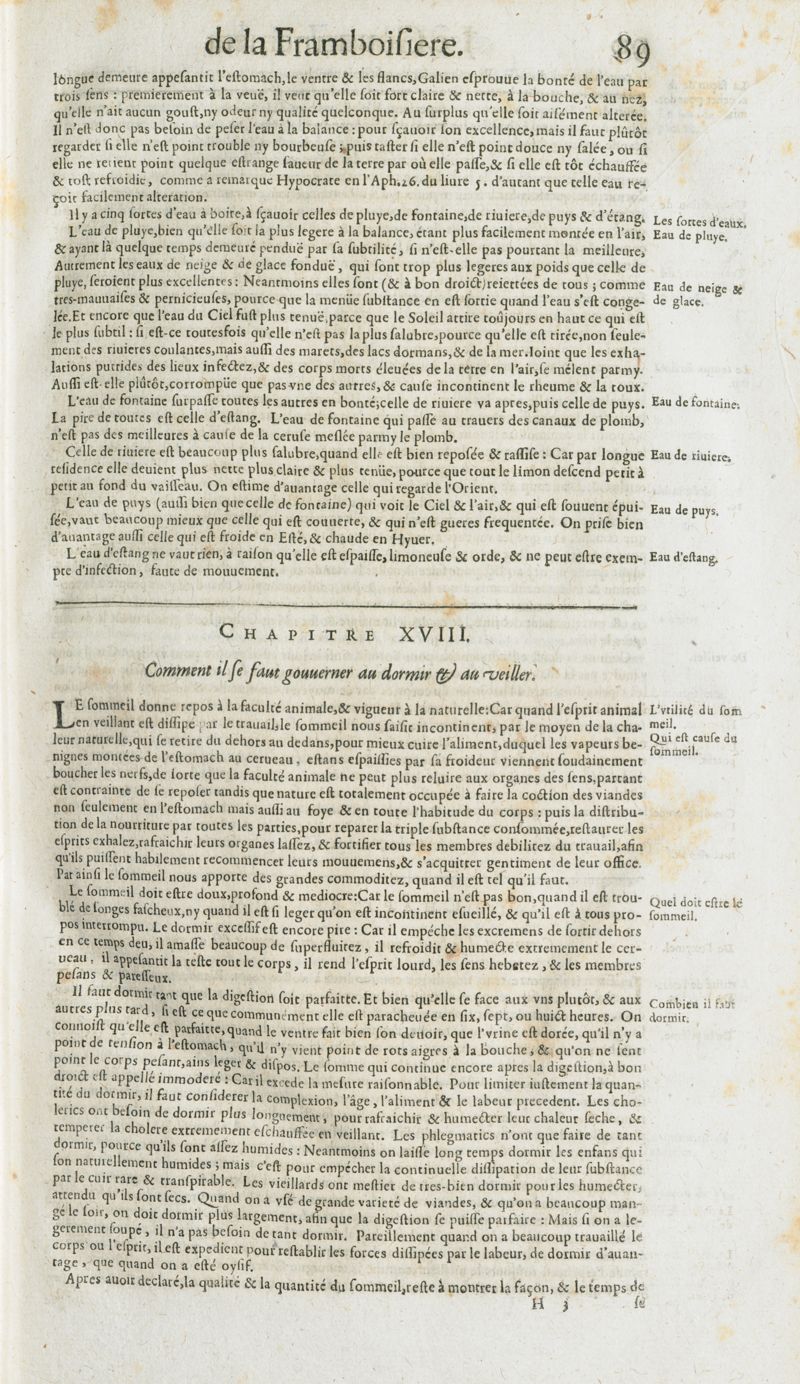 de la Framboiſiere. 89
lōngue demeure appeſantit l'eſtomach,le ventre & les flancs,Galien eſprouue la bonté de l'eau par
trois ſens : premierement à la veuë, il veut qu'elle ſoit fort claire & nette, à la bouche, & au nez,
qu'elle n'ait aucun gouſt,ny odeur ny qualité quelconque. Au ſurplus qu'elle ſoit aiſément alterée.
Il n'eſt donc pas beſoin de peſer l'eau à la balance : pour ſçauoir ſon excellence, mais il faut plûtôt
regarder ſi elle n'eſt point trouble ny bourbeuſe ; puis taſter ſi elle n'eſt point douce ny ſalée, ou ſi
elle ne retient point quelque eſtrange ſaueur de la terre par où elle paſſe,& ſi elle eſt tôt échauffée
& toſt refroidie, comme a remarque Hypocrate en l'Aph.26. du liure 5. d'autant que telle eau re-
çoit facilement alteration.
Il y a cinq ſortes d'eau à boire,à ſçauoir celles de pluye,de fontaine,de riuiere,de puys & d'étang. Les ſortes d'eaux.
L'eau de pluye,bien qu'elle ſoit la plus legere à la balance, étant plus facilement montée en l'air, Eau de pluye.
& ayant là quelque temps demeuré penduë par ſa ſubtilité, ſi n'eſt-elle pas pourtant la meilleure,
Autrement les eaux de neige & de glace fonduë, qui ſont trop plus legeres aux poids que celle de
pluye, ſeroient plus excellentes : Neantmoins elles ſont (& à bon droict) reiettées de tous ; comme Eau de neige &
tres-mauuaiſes & pernicieuſes, pource que la menüe ſubſtance en eſt ſortie quand l'eau s'eſt conge- de glace.
lée.Et encore que l'eau du Ciel fuſt plus tenuë,parce que le Soleil attire toûjours en haut ce qui eſt
le plus ſubtil : ſi eſt-ce toutesfois qu'elle n'eſt pas la plus ſalubre,pource qu'elle eſt tirée,non ſeule-
ment des riuieres coulantes,mais auſſi des marets,des lacs dormans,& de la mer.Ioint que les exha-
lations putrides des lieux infectez,& des corps morts éleuées de la terre en l'air,ſe mêlent parmy.
Auſſi eſt-elle plûtôt,corrompüe que pas-vne des autres,& cauſe incontinent le rheume & la toux.
L'eau de fontaine ſurpaſſe toutes les autres en bonté;celle de riuiere va apres,puis celle de puys. Eau de fontaine.
La pire de toutes eſt celle d'eſtang. L'eau de fontaine qui paſſe au trauers des canaux de plomb,
n'eſt pas des meilleures à cauſe de la ceruſe meſlée parmy le plomb.
Celle de riuiere eſt beaucoup plus ſalubre,quand elle eſt bien repoſée & raſſiſe : Car par longue Eau de riuiere.
reſidence elle deuient plus nette plus claire & plus tenüe, pource que tout le limon deſcend petit à
petit au fond du vaiſſeau. On eſtime d'auantage celle qui regarde l'Orient.
L'eau de puys (auſſi bien que celle de fontaine) qui voit le Ciel & l'air,& qui eſt ſouuent épui- Eau de puys.
ſée,vaut beaucoup mieux que celle qui eſt couuerte, & qui n'eſt gueres frequentée. On priſe bien
d'auantage auſſi celle qui eſt froide en Eſté,& chaude en Hyuer.
L'eau d'eſtang ne vaut rien, à raiſon qu'elle eſt eſpaiſſe,limoneuſe & orde, & ne peut eſtre exem- Eau d'eſtang.
pte d'infection, faute de mouuement.
CHAPITRE XVIII.
Comment il ſe faut gouuerner au dormir & au veiller.
LE ſommeil donne repos à la faculté animale,& vigueur à la naturelle:Car quand l'eſprit animal L'vtilité du ſom
en veillant eſt diſſipe par le trauail,le ſommeil nous ſaiſit incontinent, par le moyen de la cha- meil.
leur naturelle,qui ſe retire du dehors au dedans,pour mieux cuire l'aliment,duquel les vapeurs be- Qui eſt cauſe du
nignes montées de l'eſtomach au cerueau, eſtans eſpaiſſies par ſa froideur viennent ſoudainement ſommeil.
boucher les nerfs,de ſorte que la faculté animale ne peut plus reluire aux organes des ſens,partant
eſt contrainte de ſe repoſer tandis que nature eſt totalement occupée à faire la coction des viandes
non ſeulement en l'eſtomach mais auſſi au foye & en toute l'habitude du corps : puis la diſtribu-
tion de la nourriture par toutes les parties,pour reparer la triple ſubſtance conſommée,reſtaurer les
eſprits exhalez,rafraichir leurs organes laſſez,& fortifier tous les membres debilitez du trauail,afin
qu'ils puiſſent habilement recommencer leurs mouuemens,& s'acquitter gentiment de leur office.
Par ainſi le ſommeil nous apporte des grandes commoditez, quand il eſt tel qu'il faut.
Le ſommeil doit eſtre doux,profond & mediocre:Car le ſommeil n'eſt pas bon,quand il eſt trou- Quel doit eſtre le
blé de ſonges faſcheux,ny quand il eſt ſi leger qu'on eſt incontinent eſueillé, & qu'il eſt à tous pro- ſommeil.
pos interrompu. Le dormir exceſſif eſt encore pire : Car il empéche les excremens de ſortir dehors
en ce temps deu, il amaſſe beaucoup de ſuperfluitez, il refroidit & humecte extremement le cer-
ueau, il appeſantit la teſte tout le corps, il rend l'eſprit lourd, les ſens hebetez, & les membres
peſans & pareſſeux.
Il faut dormir tant que la digeſtion ſoit parfaitte. Et bien qu'elle ſe face aux vns plutôt, & aux Combien il faut
autres plus tard, ſi eſt ce que communément elle eſt paracheuée en ſix, ſept, ou huict heures. On dormir.
connoiſt qu'elle eſt parfaitte,quand le ventre fait bien ſon deuoir, que l'vrine eſt dorée, qu'il n'y a
point de tenſion à l'eſtomach, qu'il n'y vient point de rots aigres à la bouche, & qu'on ne ſent
point le corps peſant,ains leger & diſpos. Le ſomme qui continue encore apres la digeſtion,à bon
droict eſt appellé immoderé : Car il excede la meſure raiſonnable. Pour limiter iuſtement la quan-
tité du dormir, il faut conſiderer la complexion, l'âge, l'aliment & le labeur precedent. Les cho-
lerics ont beſoin de dormir plus longuement, pour rafraichir & humecter leur chaleur ſeche, &
temperer la cholere extremement eſchauffée en veillant. Les phlegmatics n'ont que faire de tant
dormir, pource qu'ils ſont aſſez humides : Neantmoins on laiſſe long temps dormir les enfans qui
ſon naturellement humides ; mais c'eſt pour empécher la continuelle diſſipation de leur ſubſtance
par le cuir rare & tranſpirable. Les vieillards ont meſtier de tres-bien dormir pour les humecter,
attendu qu'ils ſont ſecs. Quand on a vſé de grande varieté de viandes, & qu'on a beaucoup man-
gé le ſoir, on doit dormir plus largement, afin que la digeſtion ſe puiſſe parfaire : Mais ſi on a le-
gerement ſoupé, il n'a pas beſoin de tant dormir. Pareillement quand on a beaucoup trauaillé le
corps ou l'eſprit, il eſt expedient pour reſtablir les forces diſſipées par le labeur, de dormir d'auan-
tage, que quand on a eſté oyſif.
Apres auoir declaré,la qualité & la quantité du ſommeil,reſte à montrer la façon, & le temps de
H 3 ſe